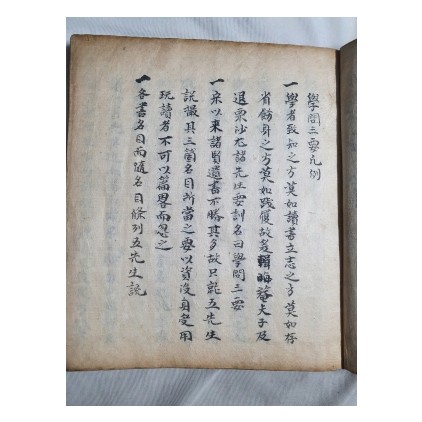 學問三要凡例
一學者致知之方莫如讀書立志之方莫如存
省飭身之方莫如踐履故玆輯晦菴夫子及
退栗沙尤諸先生要訓名曰學問三要
一宋以來諸賢遺書不勝其多故只就五先生
說撮其三箇名目所當之要以資沒身受用
玩讀者不可以篇畧而忽之
一各書名目而隨名目條列五先生說